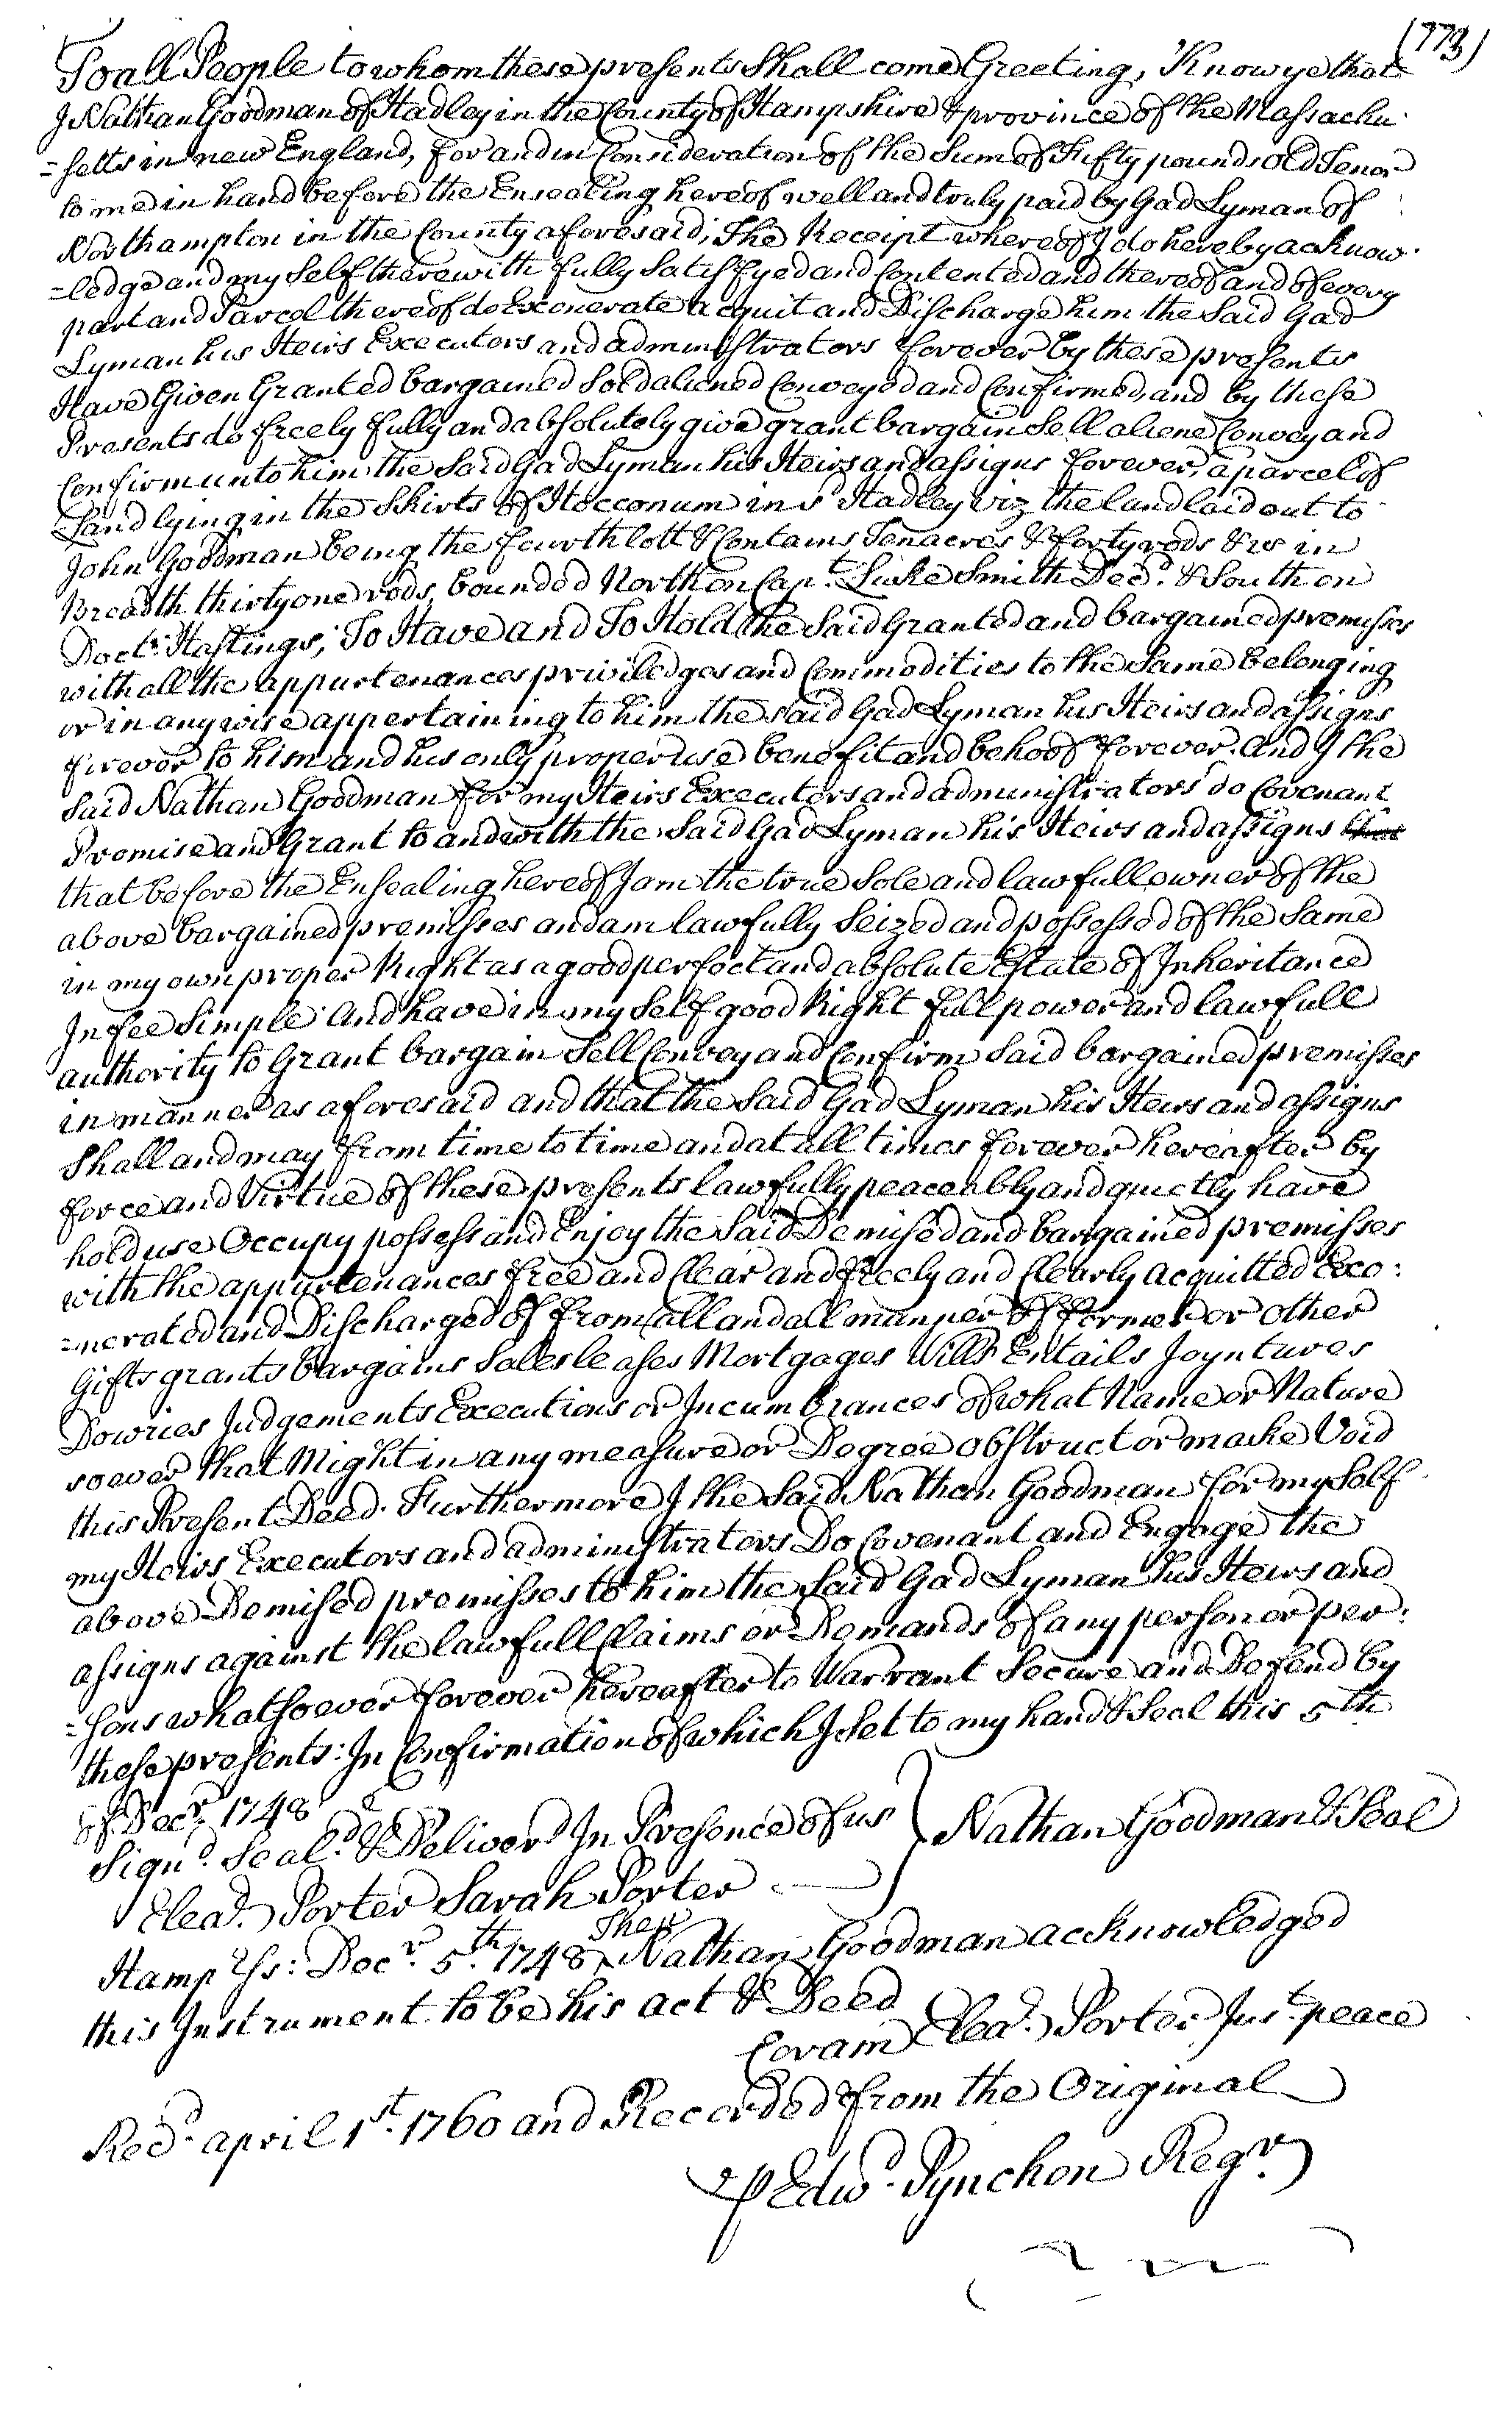 (773)
To all People to whom these presents Shall come Greeting, Know ye that
I Nathan Goodman of Hadley in the County of Hampshire & province of the Massachu
=setts in new England, for and in Consideration of the Sum of Fifty pounds old Tenor
to me in hand before the Ensealing hereof well and truly paid by Gad Lyman of
Northampton in the County aforesaid, The Receipt whereof I do hereby acknow
=ledge and my Self therewith fully Satisfyed and Contented and thereof and of every
part and Parcel thereof do Exonerate acquit and Discharge him the Said Gad
Lyman his Heirs Executors and administrators forever by these presents
Have Given Granted bargained Sold aliened Conveyed and Confirmed, and by these
Presents do freely fully and absolutely give grant bargain Sell aliene Convey and
Confirm unto him the Said Gad Lyman his Heirs and assigns forever, a parcel of
Land lying in the Skirts of Hocconum in sd Hadley viz the land laid out to
John Goodman being the fourth lott & Contains Ten acres & forty rods & is in
Breadth thirty one rods, bounded North on Capt. Luke Smith Decd. & South on
Doctr. Hastings; To Have and To Hold the Said Granted and bargained premisses
with all the appurtenances priviledges and Commodities to the Same belonging
or in any wise appertaining to him the said Gad Lyman his Heirs and assigns
forever to him and his only proper use benefit and behoof forever. And I the
Said Nathan Goodman for my Heirs Executors and administrators do Covenant
Promise and Grant to and with the Said Gad Lyman his Heirs and assigns that
that before the Ensealing hereof I am the true Sole and lawfull owner of the
above bargained premisses and am lawfully Seized and possessed of the Same
in my own proper Right as a good perfect and absolute Estate of Inheritance
In fee Simple And have in my Self good Right full power and lawfull
authority to Grant bargain Sell Convey and Confirm Said bargained premisses
in manner as aforesaid and that the Said Gad Lyman his Heirs and assigns
Shall and may from time to time and at all times forever hereafter by
force and Virtue of these presents lawfully peaceably and quietly have
hold use Occupy possess and Enjoy the Said Demised and bargained premisses
with the appurtenances free and Clear and freely and Clearly acquitted Exo:
=nerated and Discharged of from all and all manner of former or other
Gifts grants bargains Sales leases Mortgages Wills Entails Joyntures
Dowries Judgements Executions or Incumbrances of what Name or Nature
soever that Might in any measure or Degree obstruct or make Void
this Present Deed. Furthermore I the Said Nathan Goodman for my Self
my Heirs Executors and administrators Do Covenant and Engage the
above Demised premisses to him the Said Gad Lyman his Heirs and
assigns against the lawfull Claims or Demands of any person or per:
=sons whatsoever forever hereafter to Warrant Secure and Defend by
these presents: In Confirmation of which I Set to my hand & Seal this 5th
of Decr. 1748
Signd. Seald. & Deliverd In Presence of us } Nathan Goodman & Seal
Elear. Porter Sarah Porter
Hamp Ss: Decr. 5th. 1748 Then Nathan Goodman acknowledged
this Instrument to be his act & Deed
Coram Elear. Porter Just. peace
Recd. april 1st. 1760 and Recorded from the Original
⅌ Edwd. Pynchon Regr.